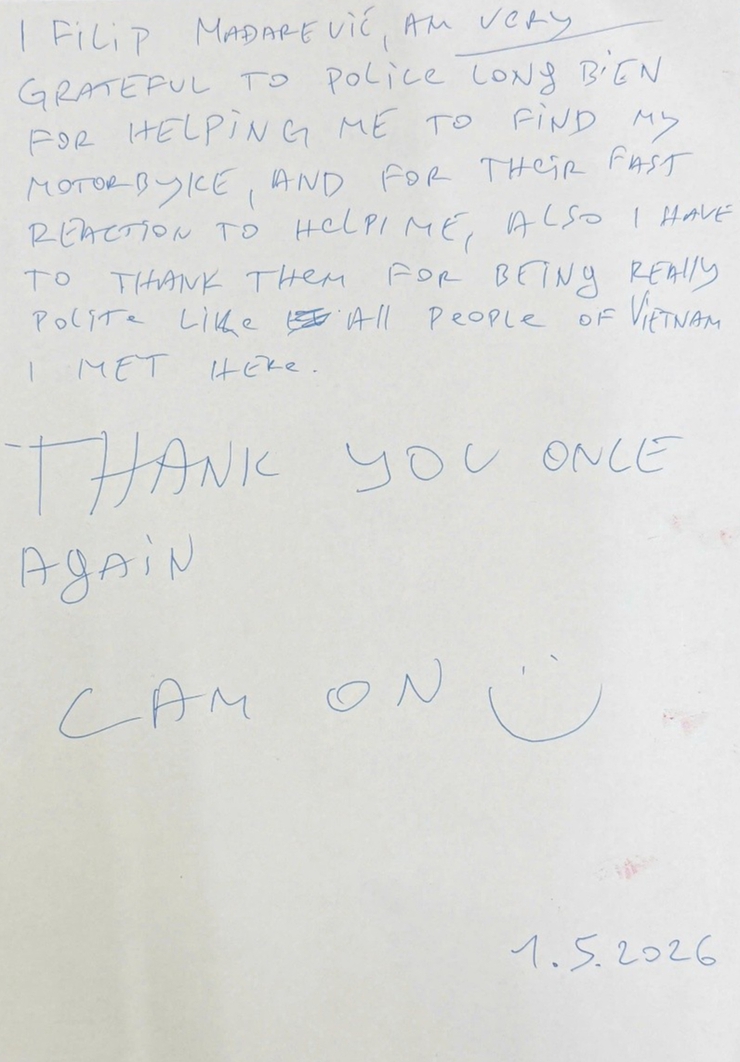 I FILIP MADAREVIĆ, AM VERY
GRATEFUL TO POLICE LONG BIEN
FOR HELPING ME TO FIND MY
MOTORBYKE, AND FOR THEIR FAST
REACTION TO HELPI ME, ALSO I HAVE
TO THANK THEM FOR BEING REALLY
POLITE LIKE All PEOPLE OF VIETNAM
I MET HERE.
THANK YOU ONCE
AGAIN
CAM ON
1.5.2026